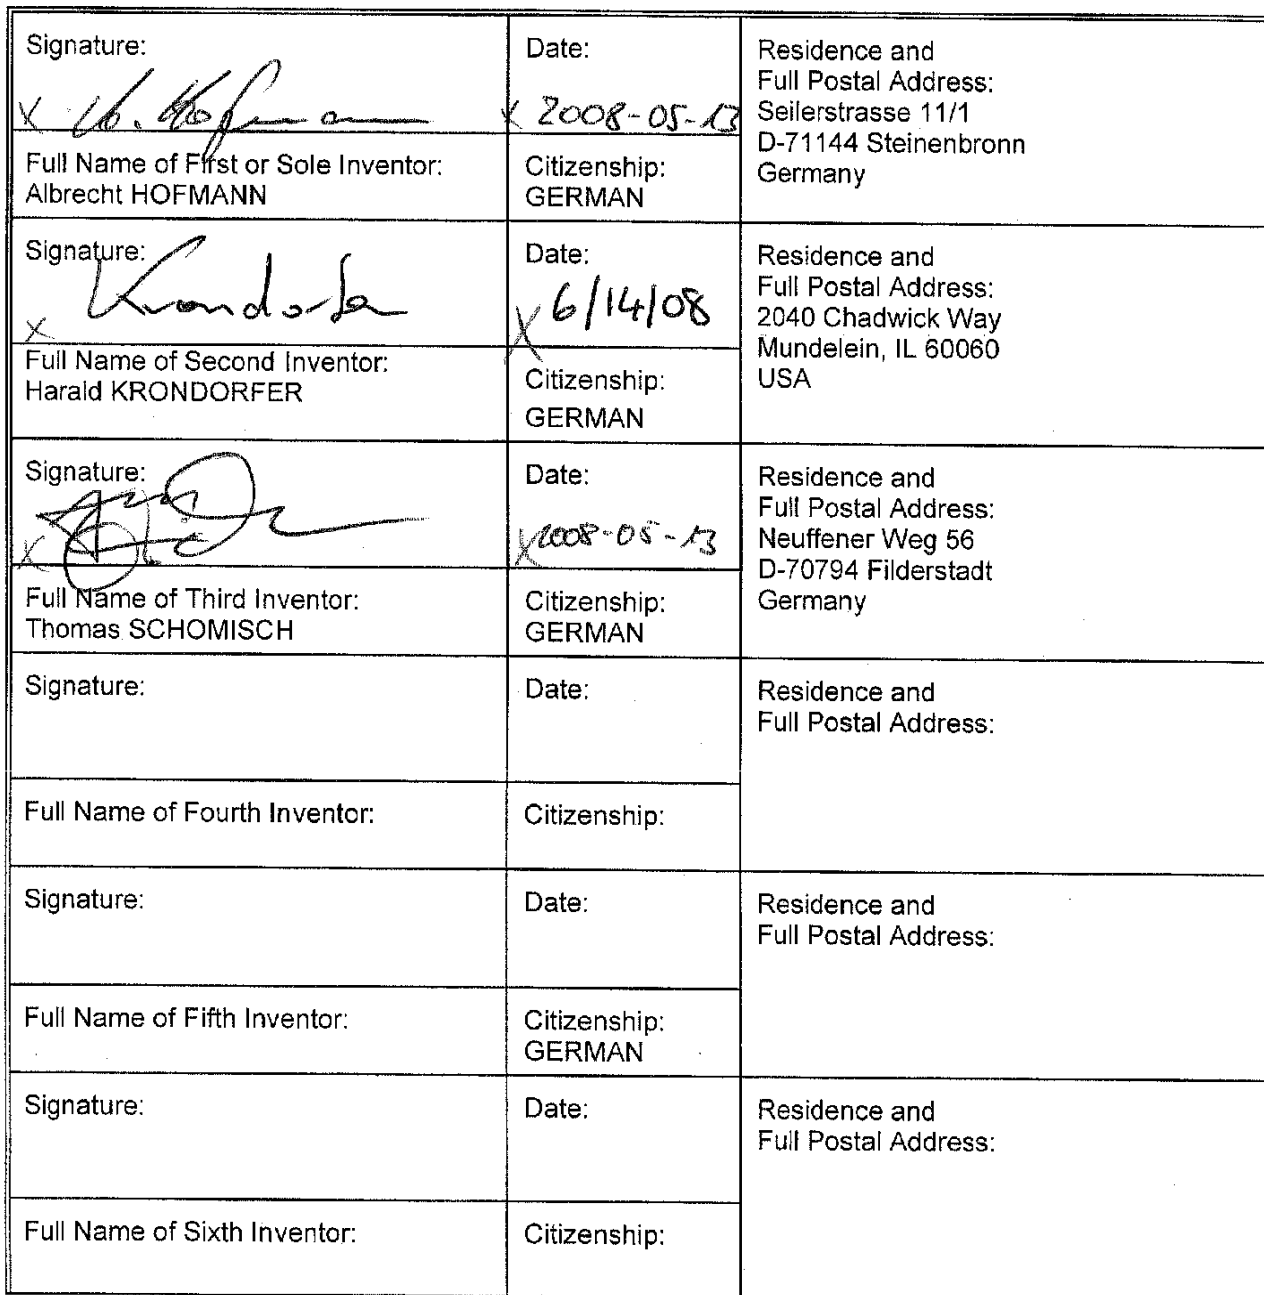 Signature:
X A. Hofmann
Date:
X 2008-05-13
Residence and
Full Postal Address:
Seilerstrasse 11/1
D-71144 Steinenbronn
Germany
Full Name of First or Sole Inventor:
Albrecht HOFMANN
Citizenship:
GERMAN
Signature:
X Krondorfer
Date:
X 6/14/08
Residence and
Full Postal Address:
2040 Chadwick Way
Mundelein, IL 60060
USA
Full Name of Second Inventor:
Harald KRONDORFER
Citizenship:
GERMAN
Signature:
X
Date:
X 2008-05-13
Residence and
Full Postal Address:
Neuffener Weg 56
D-70794 Filderstadt
Germany
Full Name of Third Inventor:
Thomas SCHOMISCH
Citizenship:
GERMAN
Signature:
Date:
Residence and
Full Postal Address:
Full Name of Fourth Inventor:
Citizenship:
Signature:
Date:
Residence and
Full Postal Address:
Full Name of Fifth Inventor:
Citizenship:
GERMAN
Signature:
Date:
Residence and
Full Postal Address:
Full Name of Sixth Inventor:
Citizenship: